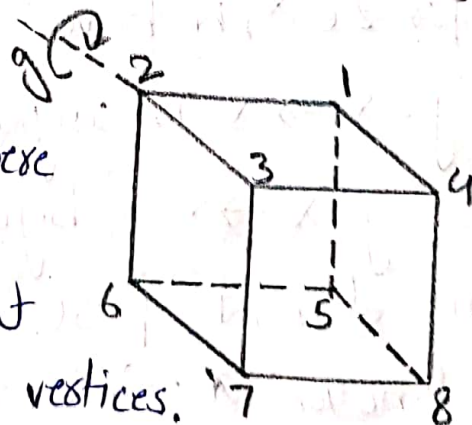 g 2 1
ere
3 4
6 5
t
vertices. 7 8